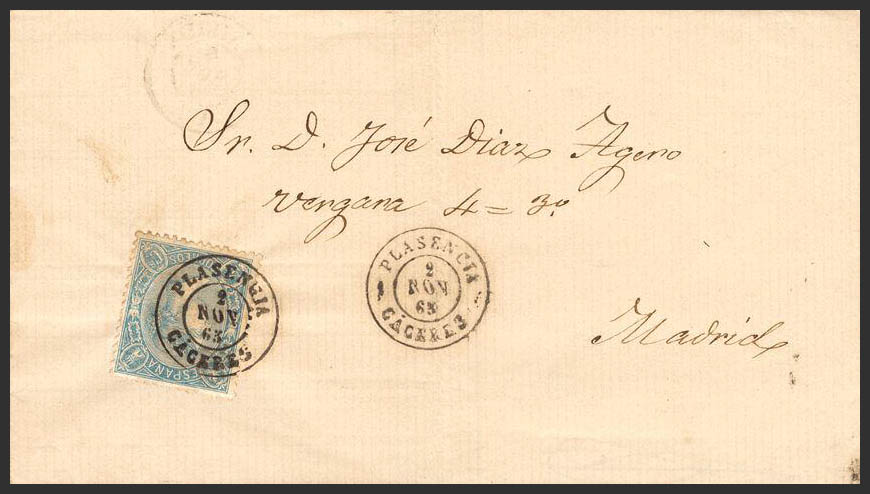 Sr. D. José Diaz Agero
Vergara 4 = 3º
Madrid
PLASENCIA
2
NOV
65
CÁCERES
PLASENCIA
2
NOV
65
CÁCERES
ESPAÑA